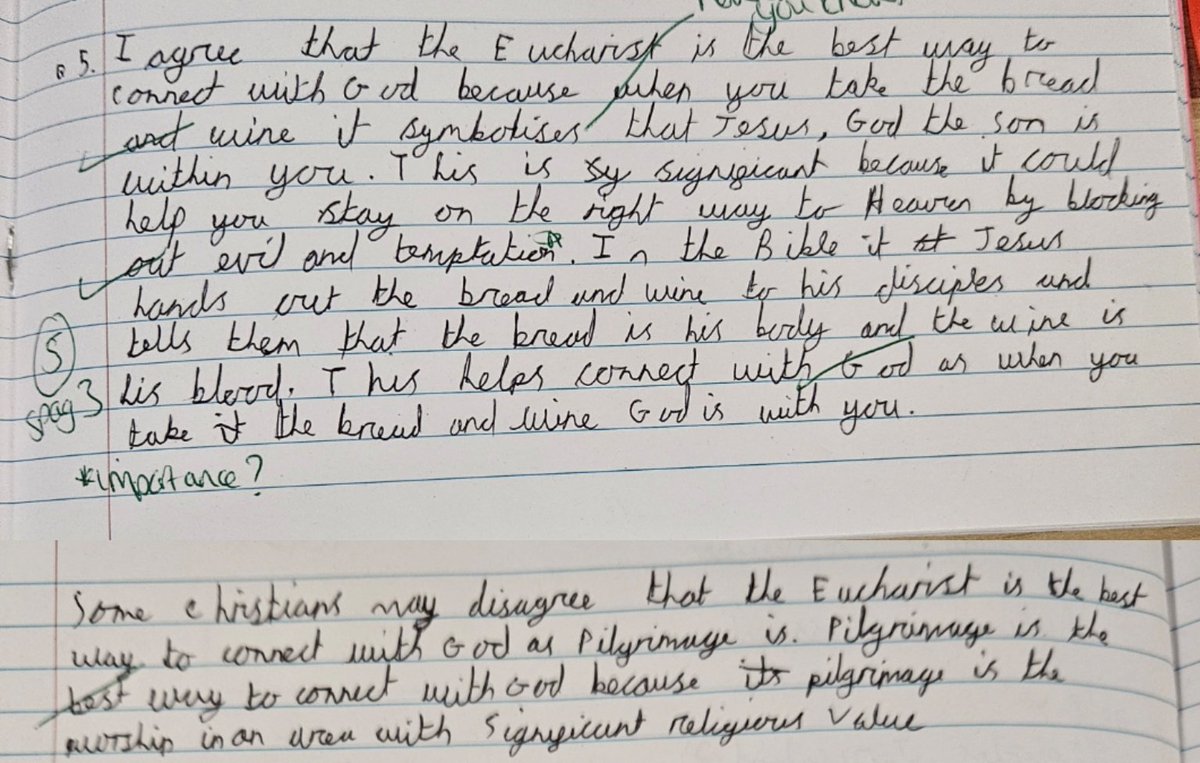 you
5. I agree that the Eucharist is the best way to
connect with God because when you take the bread
and wine it symbolises that Jesus, God the son is
within you. This is sy significant because it could
help you stay on the right way to Heaven by blocking
out evil and temptation*. In the Bible it st Jesus
hands out the bread and wine to his disciples and
tells them that the bread is his body and the wine is
his blood. This helps connect with God as when you
take it the bread and wine God is with you.
5
spag 3
*importance?
Some christians may disagree that the Eucharist is the best
way to connect with God as Pilgrimage is. Pilgrimage is the
best way to connect with God because its pilgrimage is the
worship in an area with significant religious value